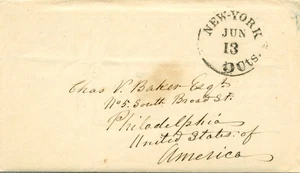 NEW-YORK
JUN
13
Cts.
Chas V. Baker Esqr.
No 5. South Broad St.
Philadelphia
United States of
America